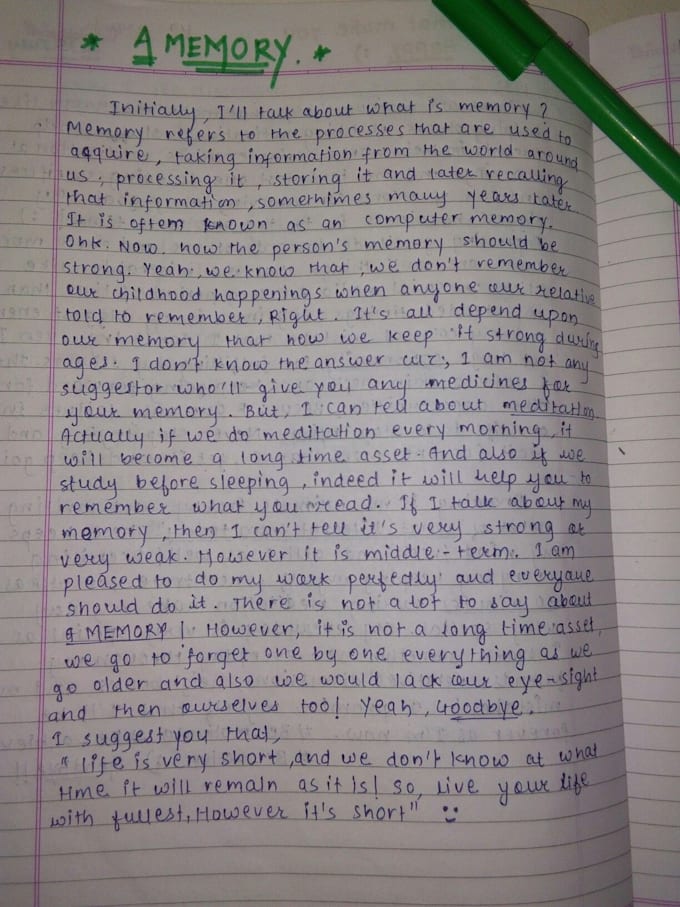 * A MEMORY. *
Initially, I'll talk about what is memory?
Memory refers to the processes that are used to
acquire, taking information from the world around
us, processing it, storing it and later recalling
that information, somethimes many years later.
It is oftem known as an computer memory.
Ohk. Now, how the person's memory should be
strong. Yeah, we know that, we don't remember
our childhood happenings when anyone our relative
told to remember, Right. It's all depend upon
our memory that how we keep it strong during
ages. I don't know the answer cuz, I am not any
suggestor who'll give you any medicines for
your memory. But, I can tell about meditation.
Actually if we do meditation every morning, it
will become a long time asset. And also if we
study before sleeping, indeed it will help you to
remember what you read. If I talk about my
memory, then I can't tell it's very strong or
very weak. However it is middle-term. I am
pleased to do my work perfedly and everyone
should do it. There is not a lot to say about
a MEMORY! However, it is not a long time asset,
we go to forget one by one everything as we
go older and also we would lack our eye-sight
and then ourselves too! Yeah, Goodbye.
I suggest you that,
"life is very short, and we don't know at what
time it will remain as it is! So, live your life
with fullest, However it's short"